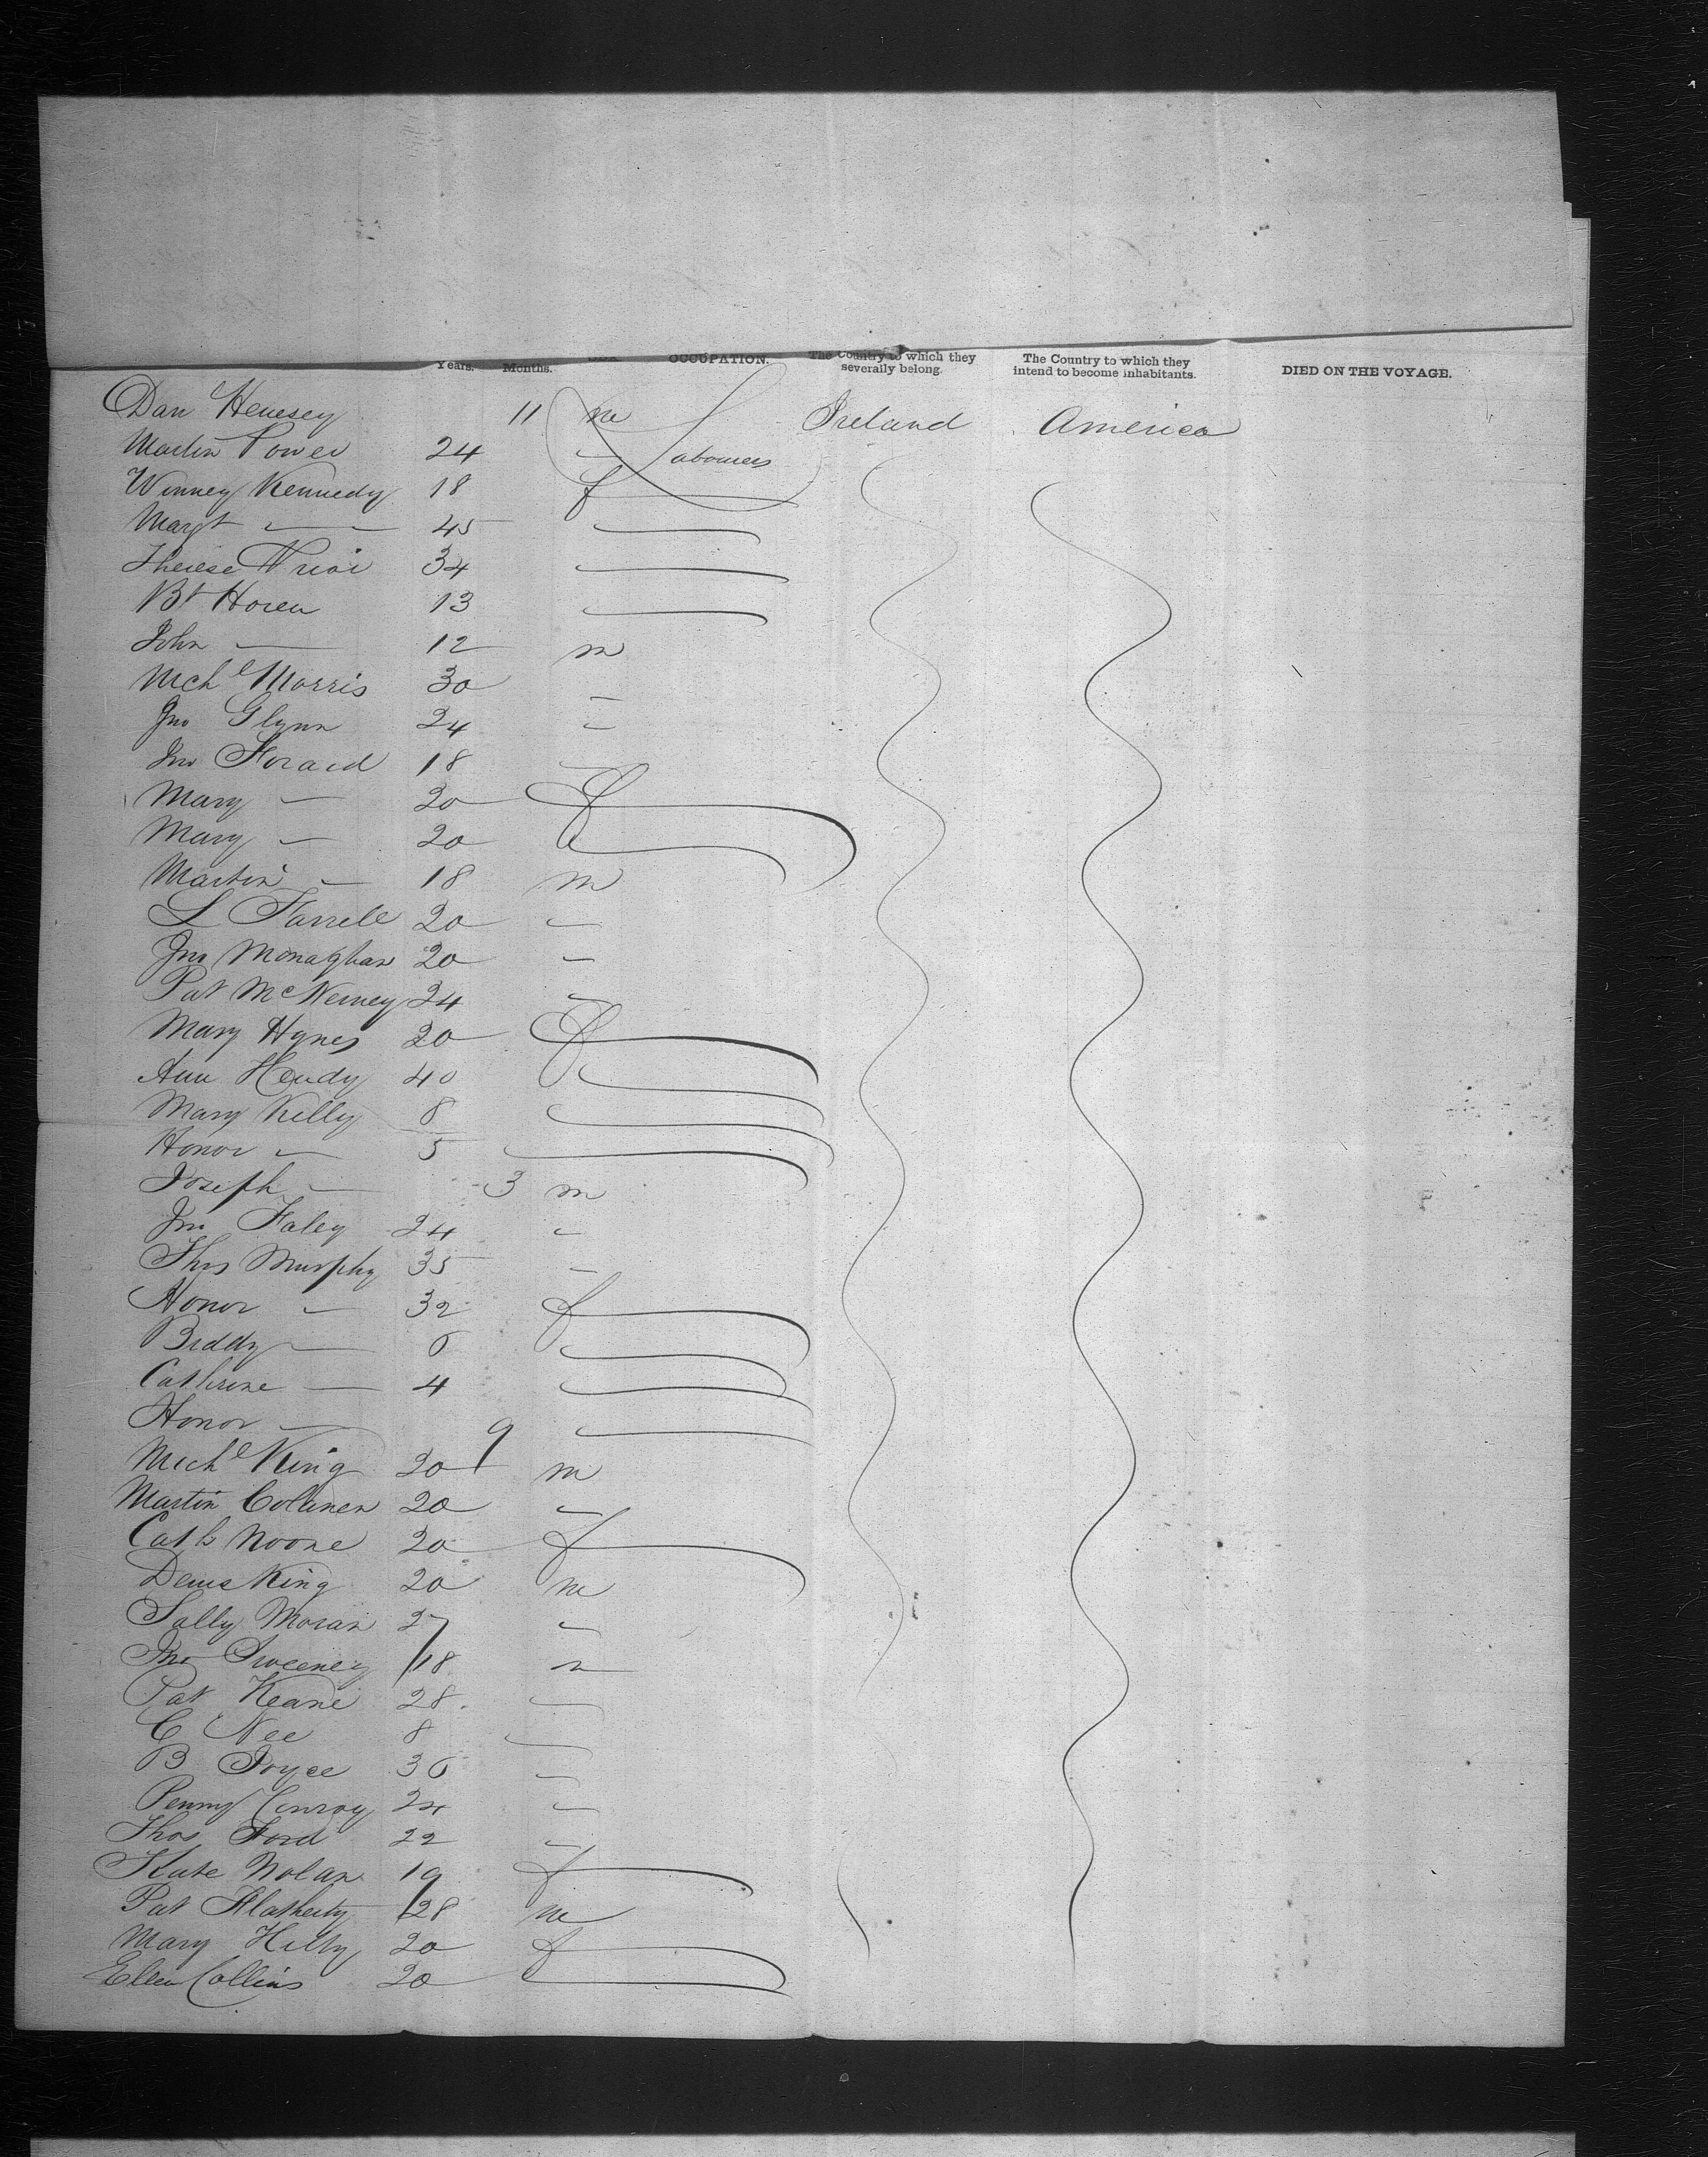 Years. Months. OCCUPATION. The Country to which they severally belong. The Country to which they intend to become inhabitants. DIED ON THE VOYAGE.
Dan Henesey 11 m Ireland America
Martin Power 24 — Labourers
Winney Kennedy 18 f
Margt — 45
Therese 34
Bt Horen 13
John — 12 m
Mchl Morris 30 —
Jno Glynn 24 —
Jno Forard 18 —
Mary — 20 f
Mary — 20
Martin — 18 m
L Farrell 20 —
Jno Monaghan 20 —
Pat McNerney 24 —
Mary Hynes 20 f
Ann Hendy 40
Mary Kelly 8
Honor — 5
Joseph — 3 m
Jno Faley 24 —
Thos Murphy 35 —
Honor — 32 f
Biddy — 6
Cathrine — 4
Honor — 9
Michl King 20 m
Martin 20 —
Cath Noone 20 f
Denis King 20 m
Sally Moran 27 —
Jno Sweeney 18 —
Pat Keane 28. —
C Nee 8 —
B Joyce 36 —
Penny Conroy 24 —
Thos Ford 22 —
Kate Nolan 19 f
Pat Flatherty 28 m
Mary Hilty 20 f
Ellen Collins 20